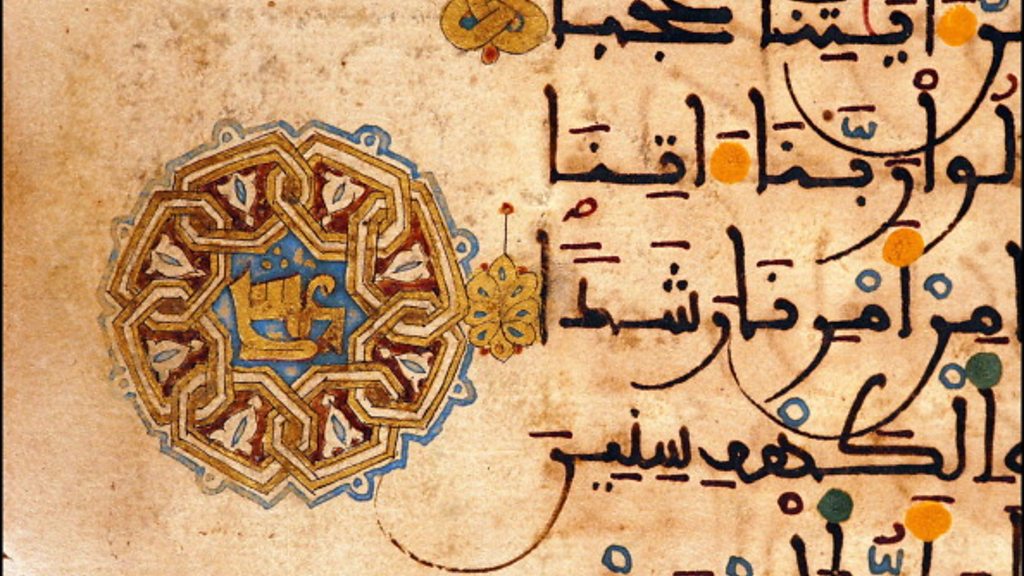 ايتنا عجبا
لوا ربنا اتنا
من امرنا رشدا
الكهف سنين